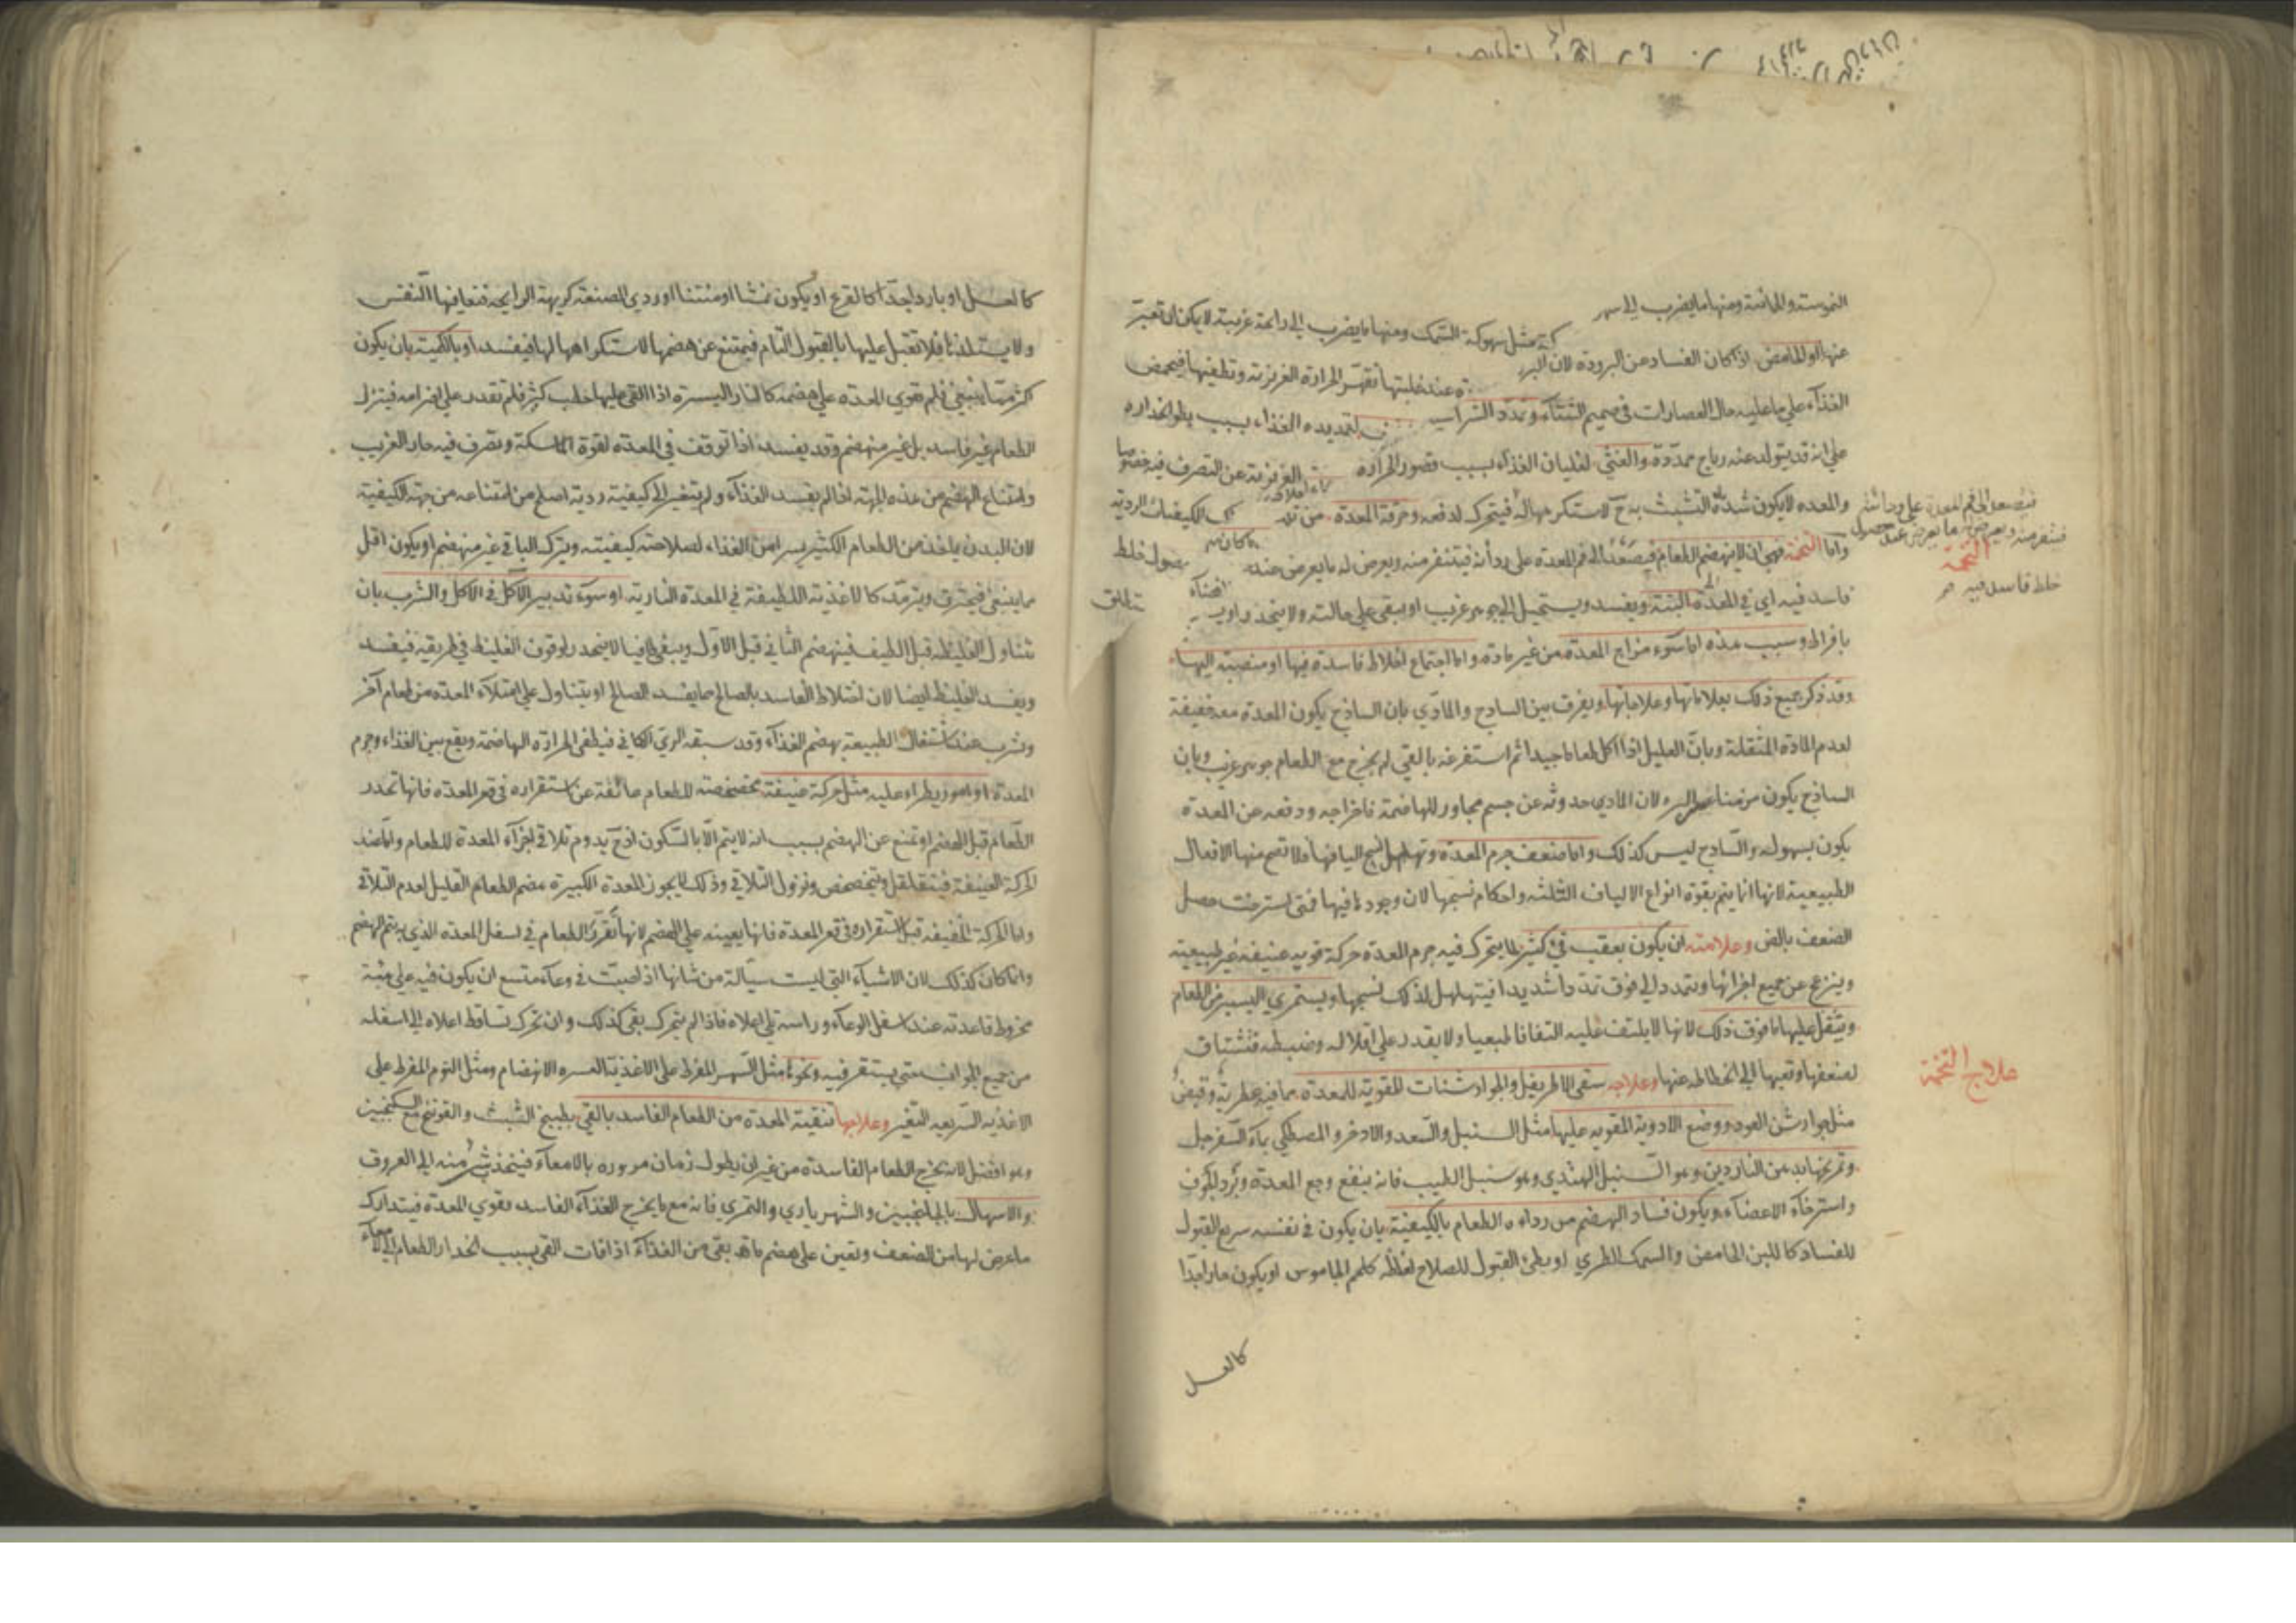 النموسته والمائته ومنها ما يضرب الى سهوكة مثل سهوكة السمك ومنها ما يضرب الى رائحة غريبة لا يمكن ان تعبر
عنها او الحامض اذا كان الفساد عن البرودة لان البرودة عند غلبتها تقهر الحرارة الغريزية وتطفيها فيحمض
الغذاء على ما عليه حال العصارات في صميم الشتاء وتمدد الشراسيف لتمديده الغذاء بسبب بطؤ انحداره
على انه قد يتولد عنه رياح ممددة والغثى لغليان الغذاء بسبب قصور الحرارة الغريزية عن التصرف فيه
والمعدة لا يكون شديدة التشبث به ح لاستكراهها له فيتحرك لدفعه وحرقة المعدة من تلك الكيفيات الردية
واما التخمة فهي ان لا ينهضم الطعام فيصعد الى فم المعدة على ردائته فيتنفر منه ويعرض له ما يعرض عند حصول خلط
فاسد فيه اي في المعدة البتة ويفسد ويستحيل الى جوهر غريب او يبقى على حالته ولا ينحدر او
بافراط وسبب هذه اما سوء مزاج المعدة من غير مادة واما اجتماع اخلاط فاسدة فيها او منصبة اليها
وقد ذكر جميع ذلك بعلاماتها وعلاجاتها ويفرق بين الساذج والمادي بان الساذج يكون المعدة معه خفيفة
لعدم المادة المثقلة وبان العليل اذا اكل طعاما جيدا ثم استفرغه بالقي لم يخرج مع الطعام جوهر غريب وبان
الساذج يكون مزمنا عسر البرء لان المادي حدوثه عن جسم مجاور للهاضمة فاخراجه ودفعه عن المعدة
يكون بسهولة والساذج ليس كذلك واما ضعف جرم المعدة وتهلهل نسج اليافها فلا تصح منها الافعال
الطبيعية لانها انما يتم بقوة انواع الالياف الثلثه واحكام نسجها لان وجودها فيها فمتى استرخت حصل
الضعف بالض وعلامته ان يكون بعقب قئ كثير لما يتحرك فيه جرم المعدة حركة قويه عنيفة غير طبيعية
وينزعج عن جميع اجزائها ويتمدد الى فوق تمددا شديدا فيتهلهل لذلك نسجها ويستمري اليسير من الطعام
ويثقل عليها ما فوق ذلك لانها لا يلتف عليه التفافا طبيعيا ولا يقدر على اقلاله وضبطه فتشتاق
لضعفها وتعبها الى انحطاطه عنها وعلاجه سقى الاطريفل والجوارشنات المقوية للمعدة مما فيه عطرية وقبض
مثل جوارشن العود ووضع الادوية المقويه عليها مثل السنبل والسعد والاذخر والمصطكي بماء السفرجل
وتمريخها بدهن الناردين وهو السنبل الهندي وهو سنبل الطيب فانه ينفع وجع المعدة وبرد الجوف
واسترخاء الاعضاء ويكون فساد الهضم من رداءة الطعام بالكيفية بان يكون في نفسه سريع القبول
للفساد كاللبن الحامض والسمك الطري او بطئ القبول للصلاح لغلظه كلحم الجاموس او يكون حارا جدا
كالعسل
فيصعد الى فم المعدة على ردائته
فيتنفر منه ويعرض لها ما يعرض عند حصول
التخمة
خلط فاسد فيه
علاج التخمة
كالعسل او باردا جدا كالقرع او يكون نمشا او منتنا او ردي الصنعة كريهة الرايحة فتعافها النفس
ولا يستلذها فلا تقبل عليها بالقبول التام فيمتنع عن هضمها لاستكراهها لها فيفسد او بالكمية بان يكون
اكثر مما ينبغي فلم تقوي المعدة على هضمه كالنار اليسيرة اذا القي عليها حطب كثير فلم تقدر على اضرامه فينزل
الطعام غير فاسد بل غير منهضم وقد يفسد اذا توقف في المعدة لقوة الماسكة وتصرف فيه حار الغريب
وامتناع الهضم من هذه الجهة اذا لم يفسد الغذاء ولم يتغير الى كيفية ردية اصلح من امتناعه من جهة الكيفية
لان البدن ياخذ من الطعام الكثير يسيرا من الغذاء لصلاحية كيفيته ويترك الباقي غير منهضم او يكون اقل
مما ينبغي فيحترق ويترمد كالاغذية اللطيفة في المعدة النارية او سوء تدبير الاكل في الاكل والشرب بان
تتناول الغليظ قبل اللطيف فينهضم الثاني قبل الاول ويبقى طافيا لا ينحدر لوقوف الغليظ في طريقه فيفسد
ويفسد الغليظ ايضا لان اختلاط الفاسد بالصالح مما يفسد الصالح او يتناول على امتلاء المعدة من طعام آخر
وشرب عند اشتغال الطبيعة بهضم الغذاء وقد سبقه الري الكافي فيطفى الحرارة الهاضمة ويقع بين الغذاء وجرم
المعدة او امور يطراء عليه مثل حركة عنيفة مخضخضة للطعام مانعة عن استقراره في قعر المعدة فانها تحدر
الطعام قبل الهضم او تمنع عن الهضم بسبب انه لا يتم الا بالسكون اذ ح يدوم تلاقي اجزاء المعدة للطعام واما عند
الحركة العنيفة فيتقلقل ويتخضخض ويزول التلاقي وذلك لا يجوز للمعدة الكبيرة هضم الطعام القليل لعدم التلاقي
واما الحركة الخفيفة قبل استقراره في قعر المعدة فانها يعينه على الهضم لانها تقرر الطعام في اسفل المعدة الذي به يتم الهضم
وانما كان كذلك لان الاشياء التي ليست سيالة من شانها اذا صبت في وعاء متسع ان يكون فيه على هيئة
مخروط قاعدته عند اسفل الوعاء وراسه يلي اعلاه فاذا لم يتحرك بقى كذلك وان تحرك تساقط اعلاه الى اسفله
من جميع الجوانب حتى يستقر فيه ونحوها مثل السهر المفرط على الاغذية العسره الانهضام ومثل النوم المفرط على
الاغذية السريعه التغير وعلاجها تنقية المعدة من الطعام الفاسد بالقي بطبيخ الشبث والفوتنج مع السكنجبين
وهو افضل لانه يخرج الطعام الفاسد من غير ان يطول زمان مروره بالامعاء فينجذب شئ منه الى العروق
والاسهال بالجلنجبين والشهرياري والتمري فانه مع ما يخرج الغذاء الفاسد يقوي المعدة فيتدارك
ما عرض لها من الضعف وتعين على هضم ما قد بقى من الغذاء اذا فات القي بسبب انحدار الطعام الى الامعاء